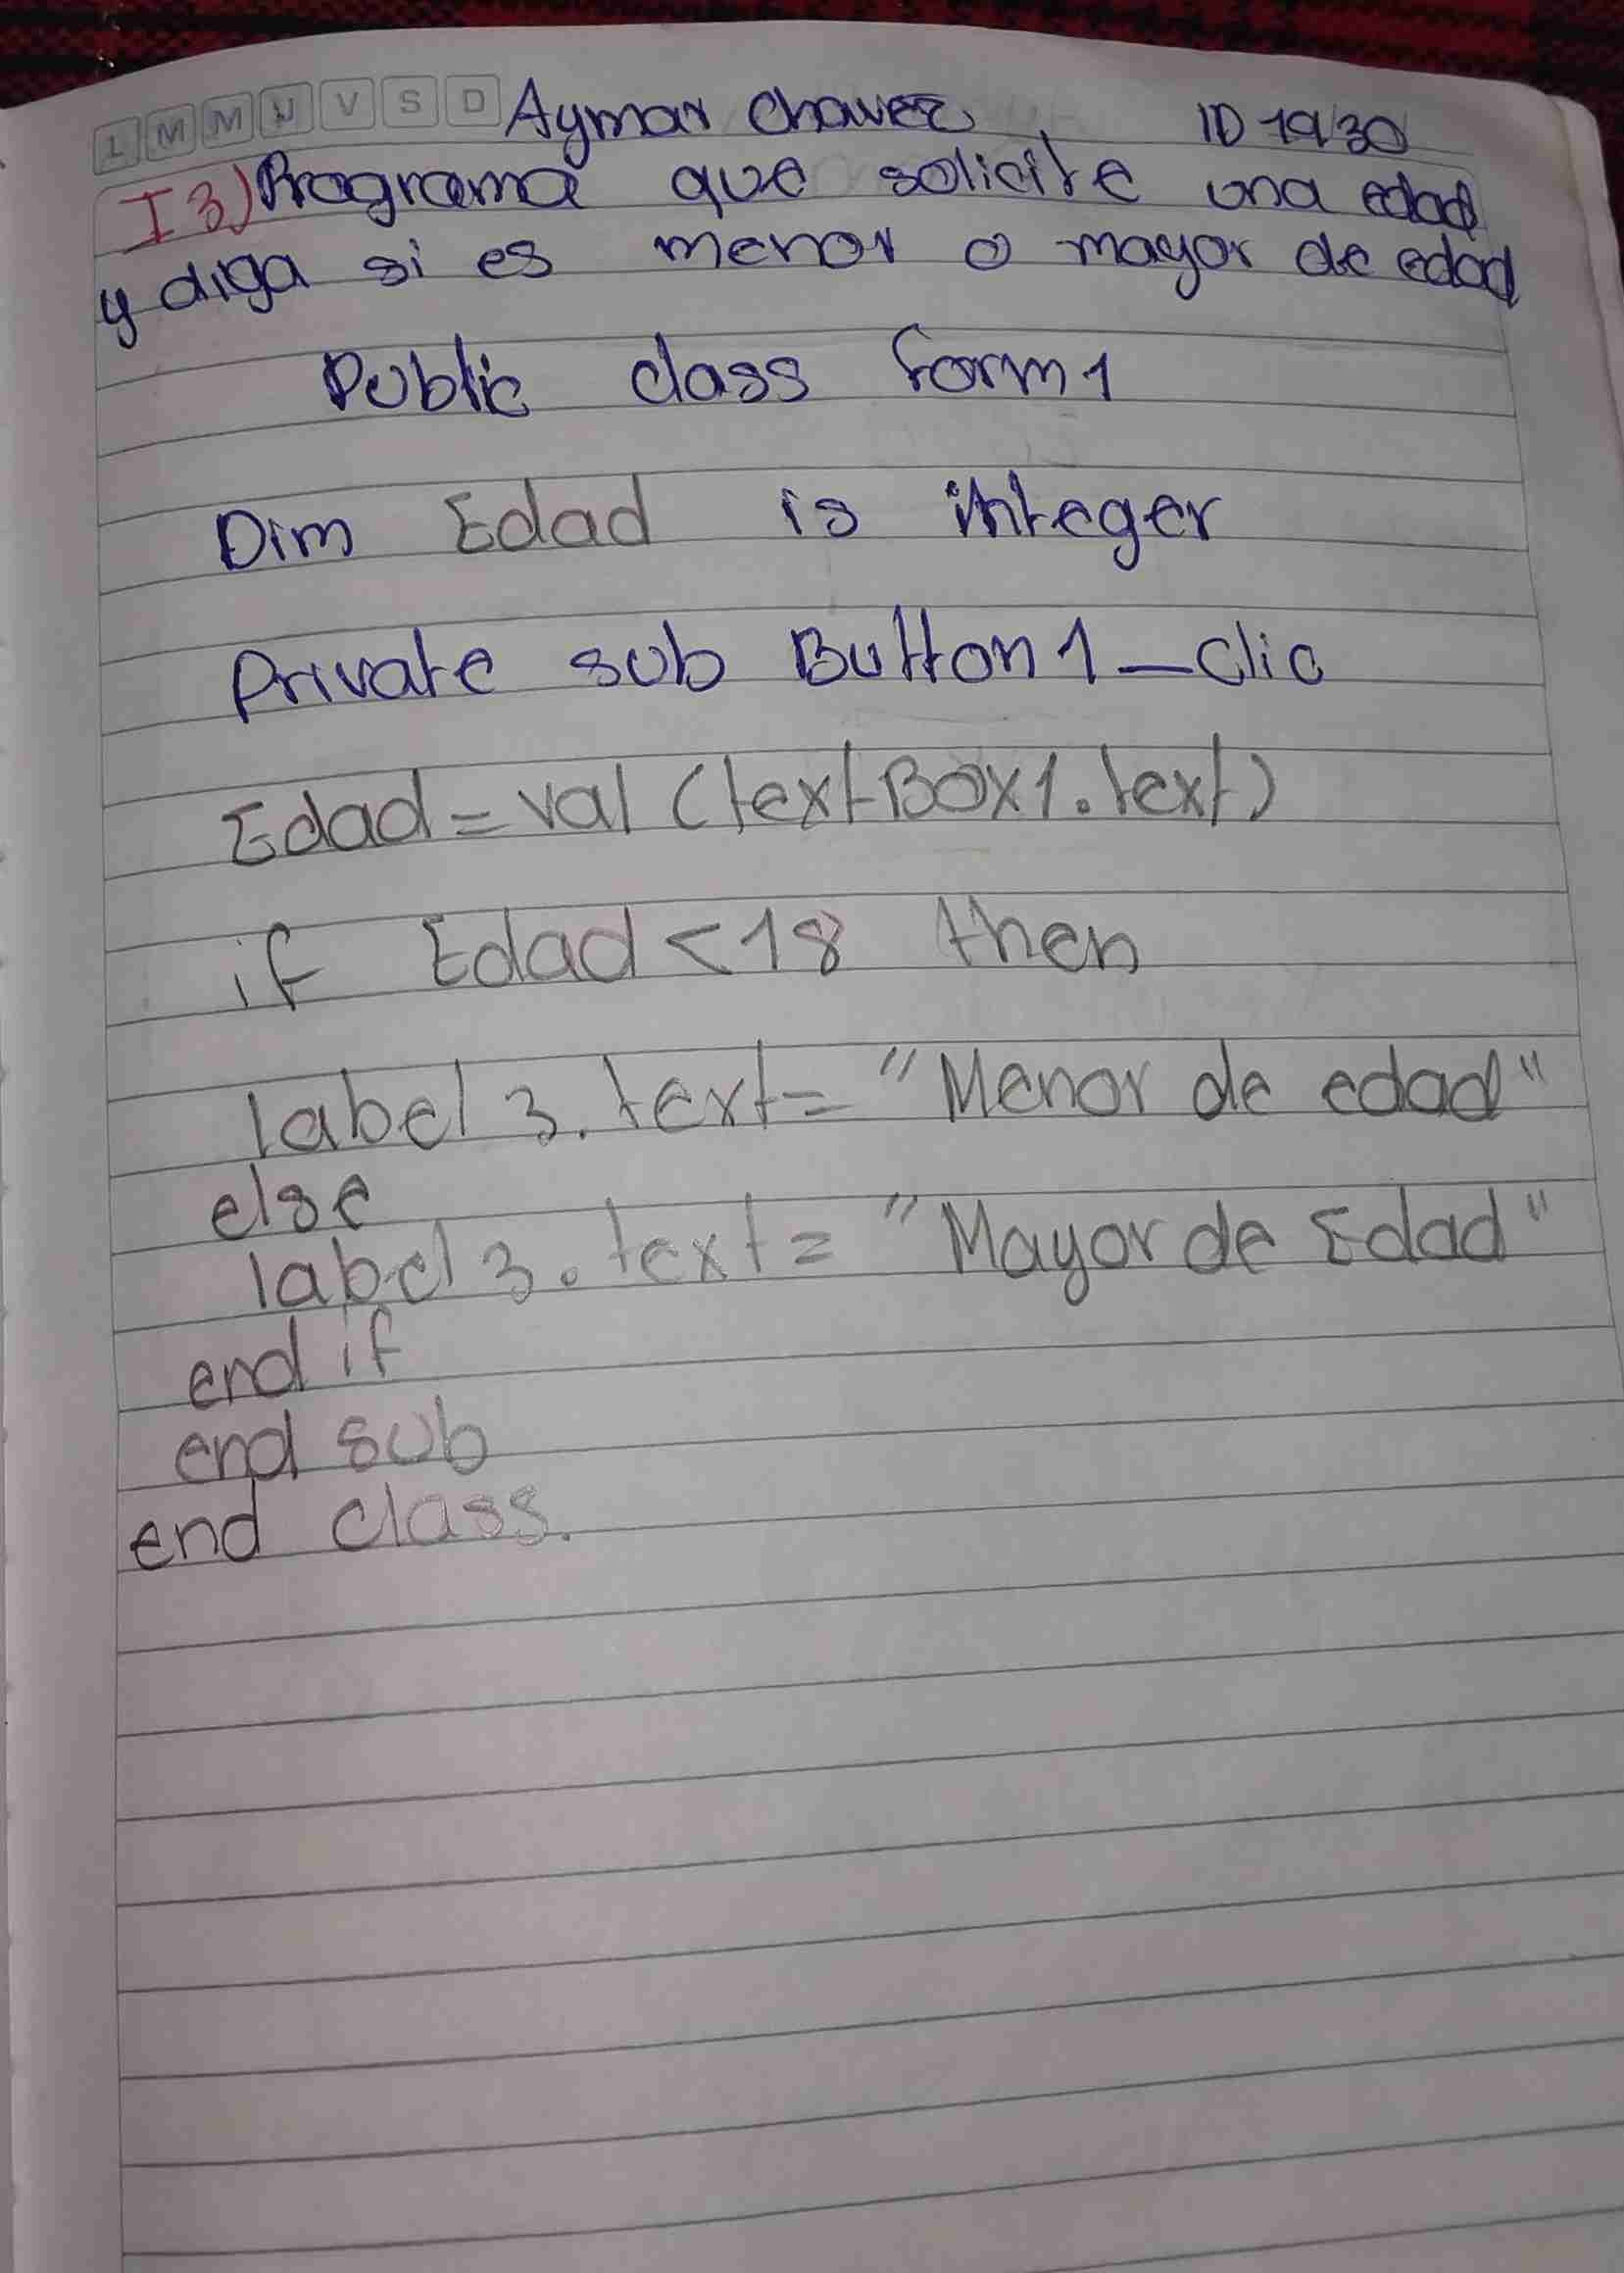 L M M J V S D Aymar Chavez ID 1930
I 3) Programa que solicite una edad
y diga si es menor o mayor de edad
Public class form1
Dim Edad is integer
Private sub Button1_clic
Edad=val (textBox1.text)
if Edad<18 then
label3.text= "Menor de edad"
else
label3.text= "Mayor de Edad"
end if
end sub
end class.